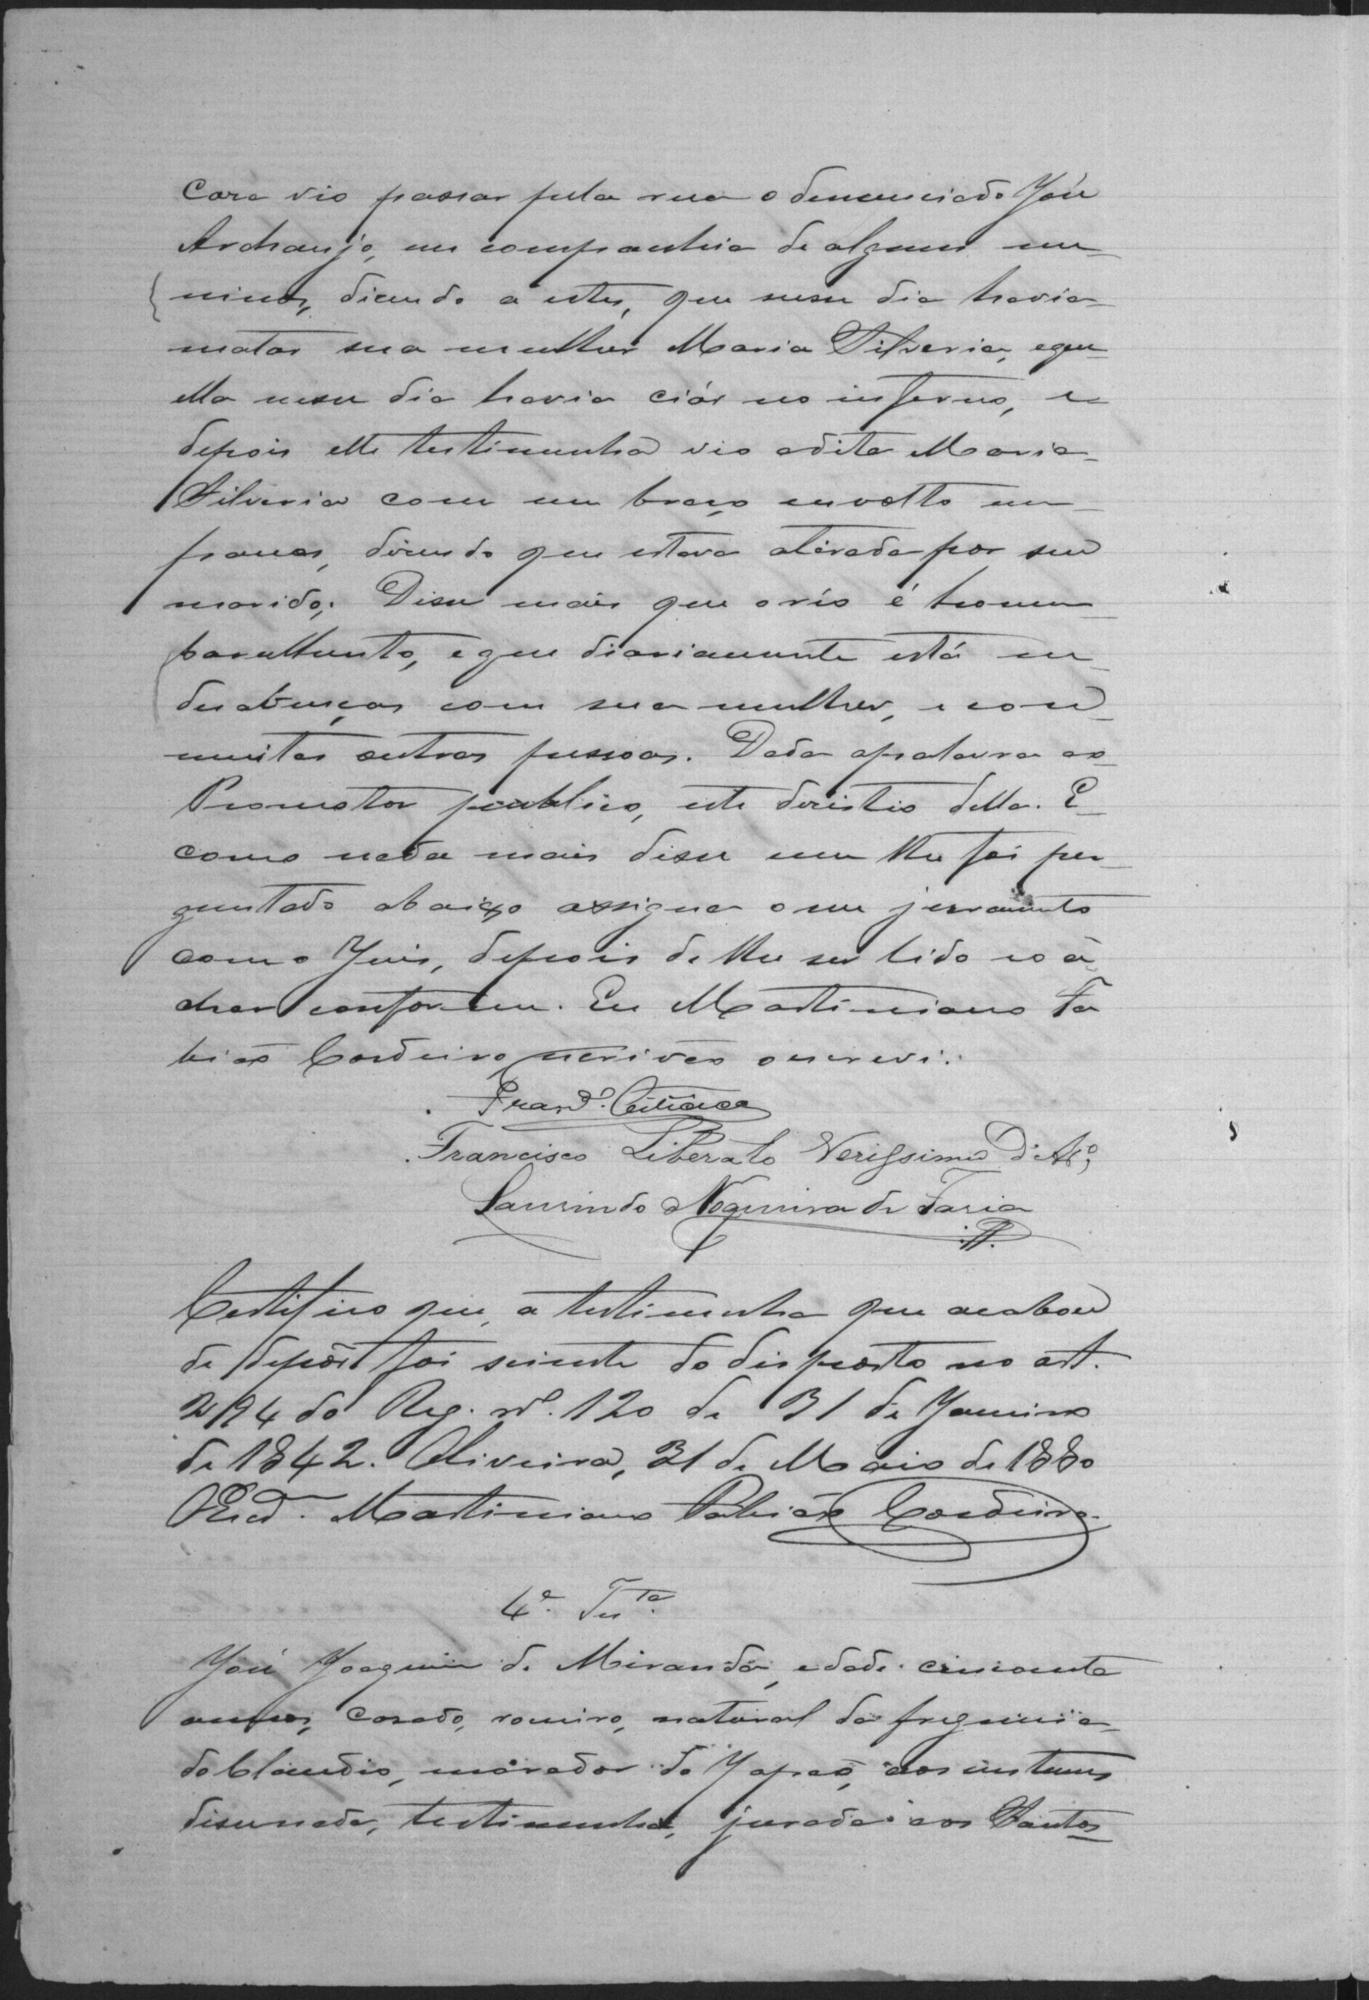 casa vio passar pela rua o denunciado José
Archanjo, em companhia de alguns me-
ninos, dizendo a estes, que nesse dia havia
matar sua mulher Maria Silveria, e que
ella nesse dia havia ciár no inferno, e
depois elle testimunha vio a dita Maria
Silveria com um braço envolto em
panos, dizendo que estava atirada por seu
marido; Disse mais que o réo é homem
barulhento, e que diariamente está em
desavenças com sua mulher, e com
muitas outras pessoas. Dada a palavra ao
Promotor publico, este desistio della. E
como nada mais disse nem lhe foi per-
guntado abaixo assigna o seu juramento
com o Juis, depois de lhe ser lido e o a
char conforme. Eu Martiniano Fa
bião Cordeiro, escrivão o escrevi.
Francisco Liberato Verissimo D'Ar.º
Laurindo Nogueira de Faria
Certifico que, a testimunha que acabou
de depôr foi sciente do disposto no art.
294 do Reg. nº. 120 de 31 de Janeiro
de 1842. Oliveira, 31 de Maio de 1880
O Escr. Martiniano Fabião Cordeiro
4ª. TesTª.
José Joaquim de Miranda, edade cincoenta
annos, casado, roceiro, natural da freguezia
do Claudio, morador do Japão, aos custumes
disse nada, testimunha, jurada aos Santos